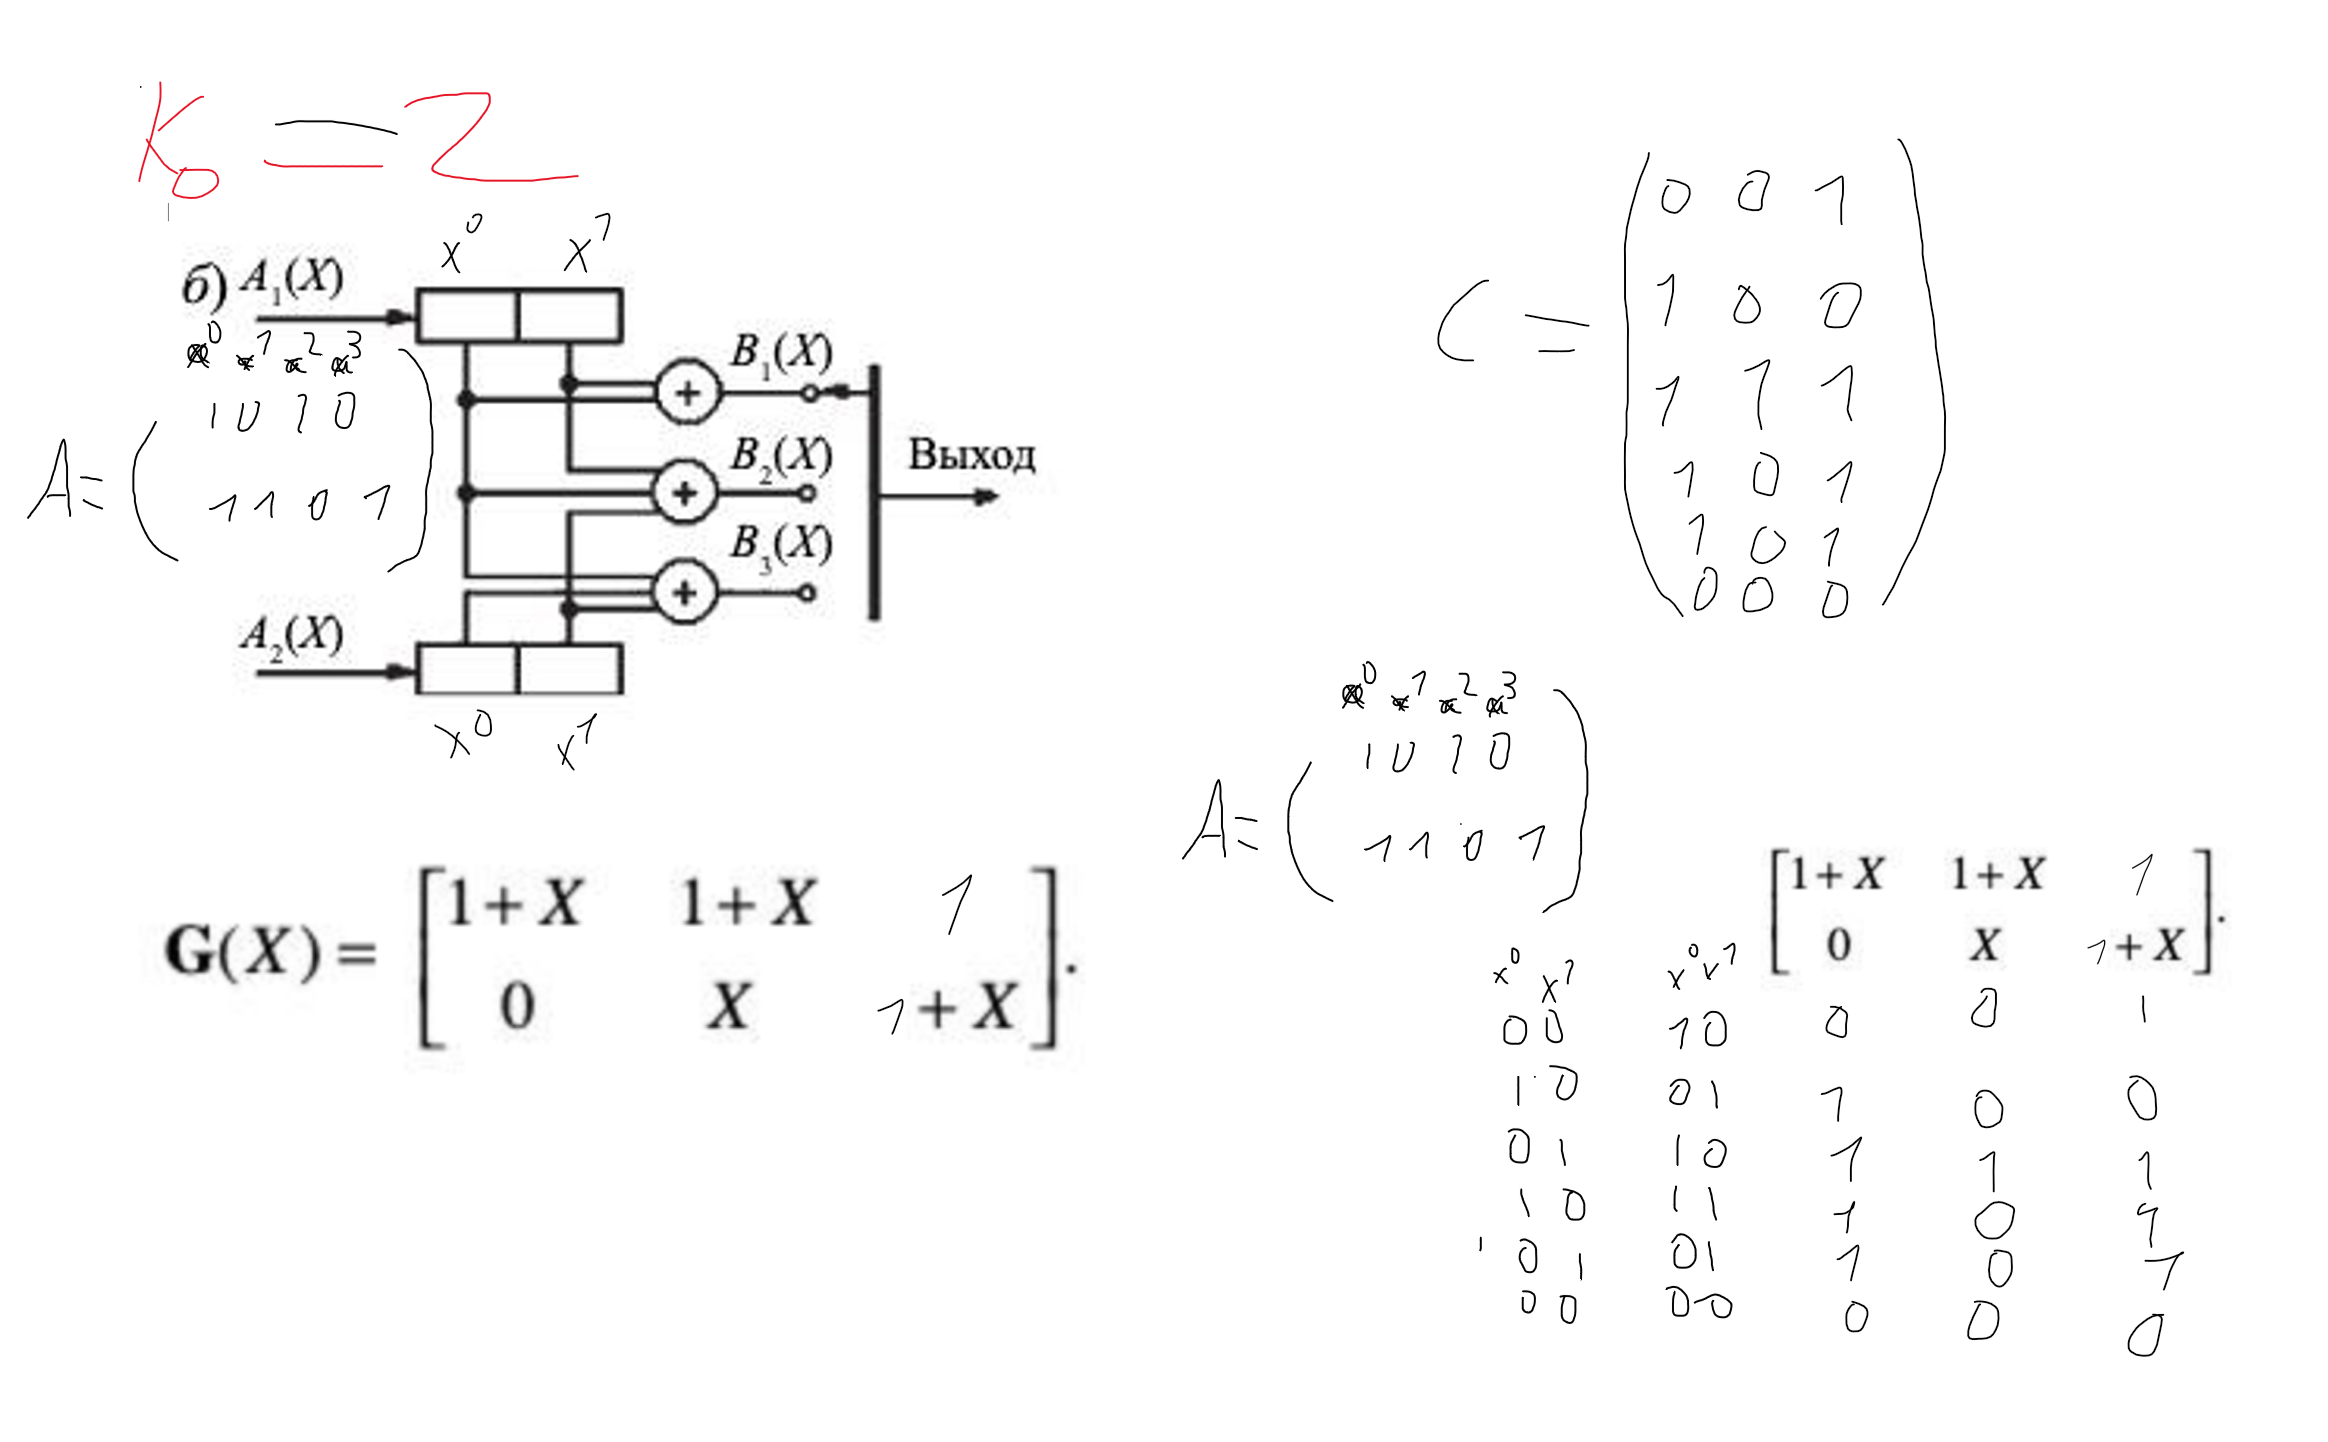 K₀ = 2
x⁰ x¹
б) A₁(X)
x⁰ x¹ x² x³
A = ( 1 0 1 0
1 1 0 1 )
+ B₁(X)
+ B₂(X)
Выход
+ B₃(X)
A₂(X)
x⁰ x¹
G(X) = [ 1 + X 1 + X 1
0 X 1 + X ].
C = ( 0 0 1
1 0 0
1 1 1
1 0 1
1 0 1
0 0 0 )
x⁰ x¹ x² x³
A = ( 1 0 1 0
1 1 0 1 )
[ 1 + X 1 + X 1
0 X 1 + X ].
x⁰ x¹ x⁰ x¹
0 0 1 0 0 0 1
1 0 0 1 1 0 0
0 1 1 0 1 1 1
1 0 1 1 1 0 1
0 1 0 1 1 0 1
0 0 0 0 0 0 0